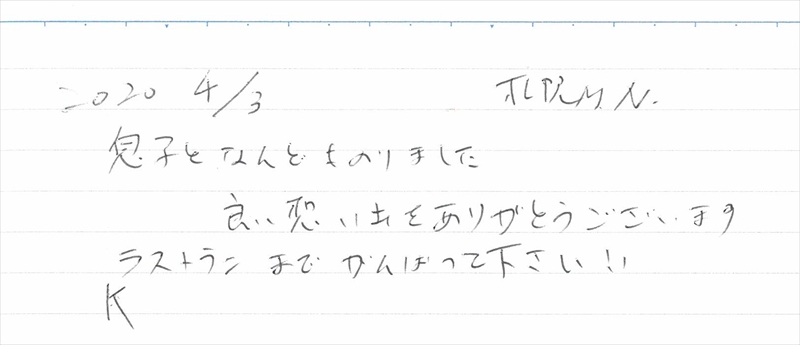 2020 4/3 札幌M.N.
息子となんどものりました
良い想い出をありがとうございます
ラストランまでがんばって下さい!!
K